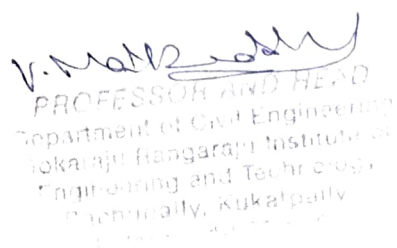 V. Mallikarjuna Reddy
PROFESSOR AND HEAD
Department of Civil Engineering
Gokaraju Rangaraju Institute of
Engineering and Technology,
Bachupally, Kukatpally